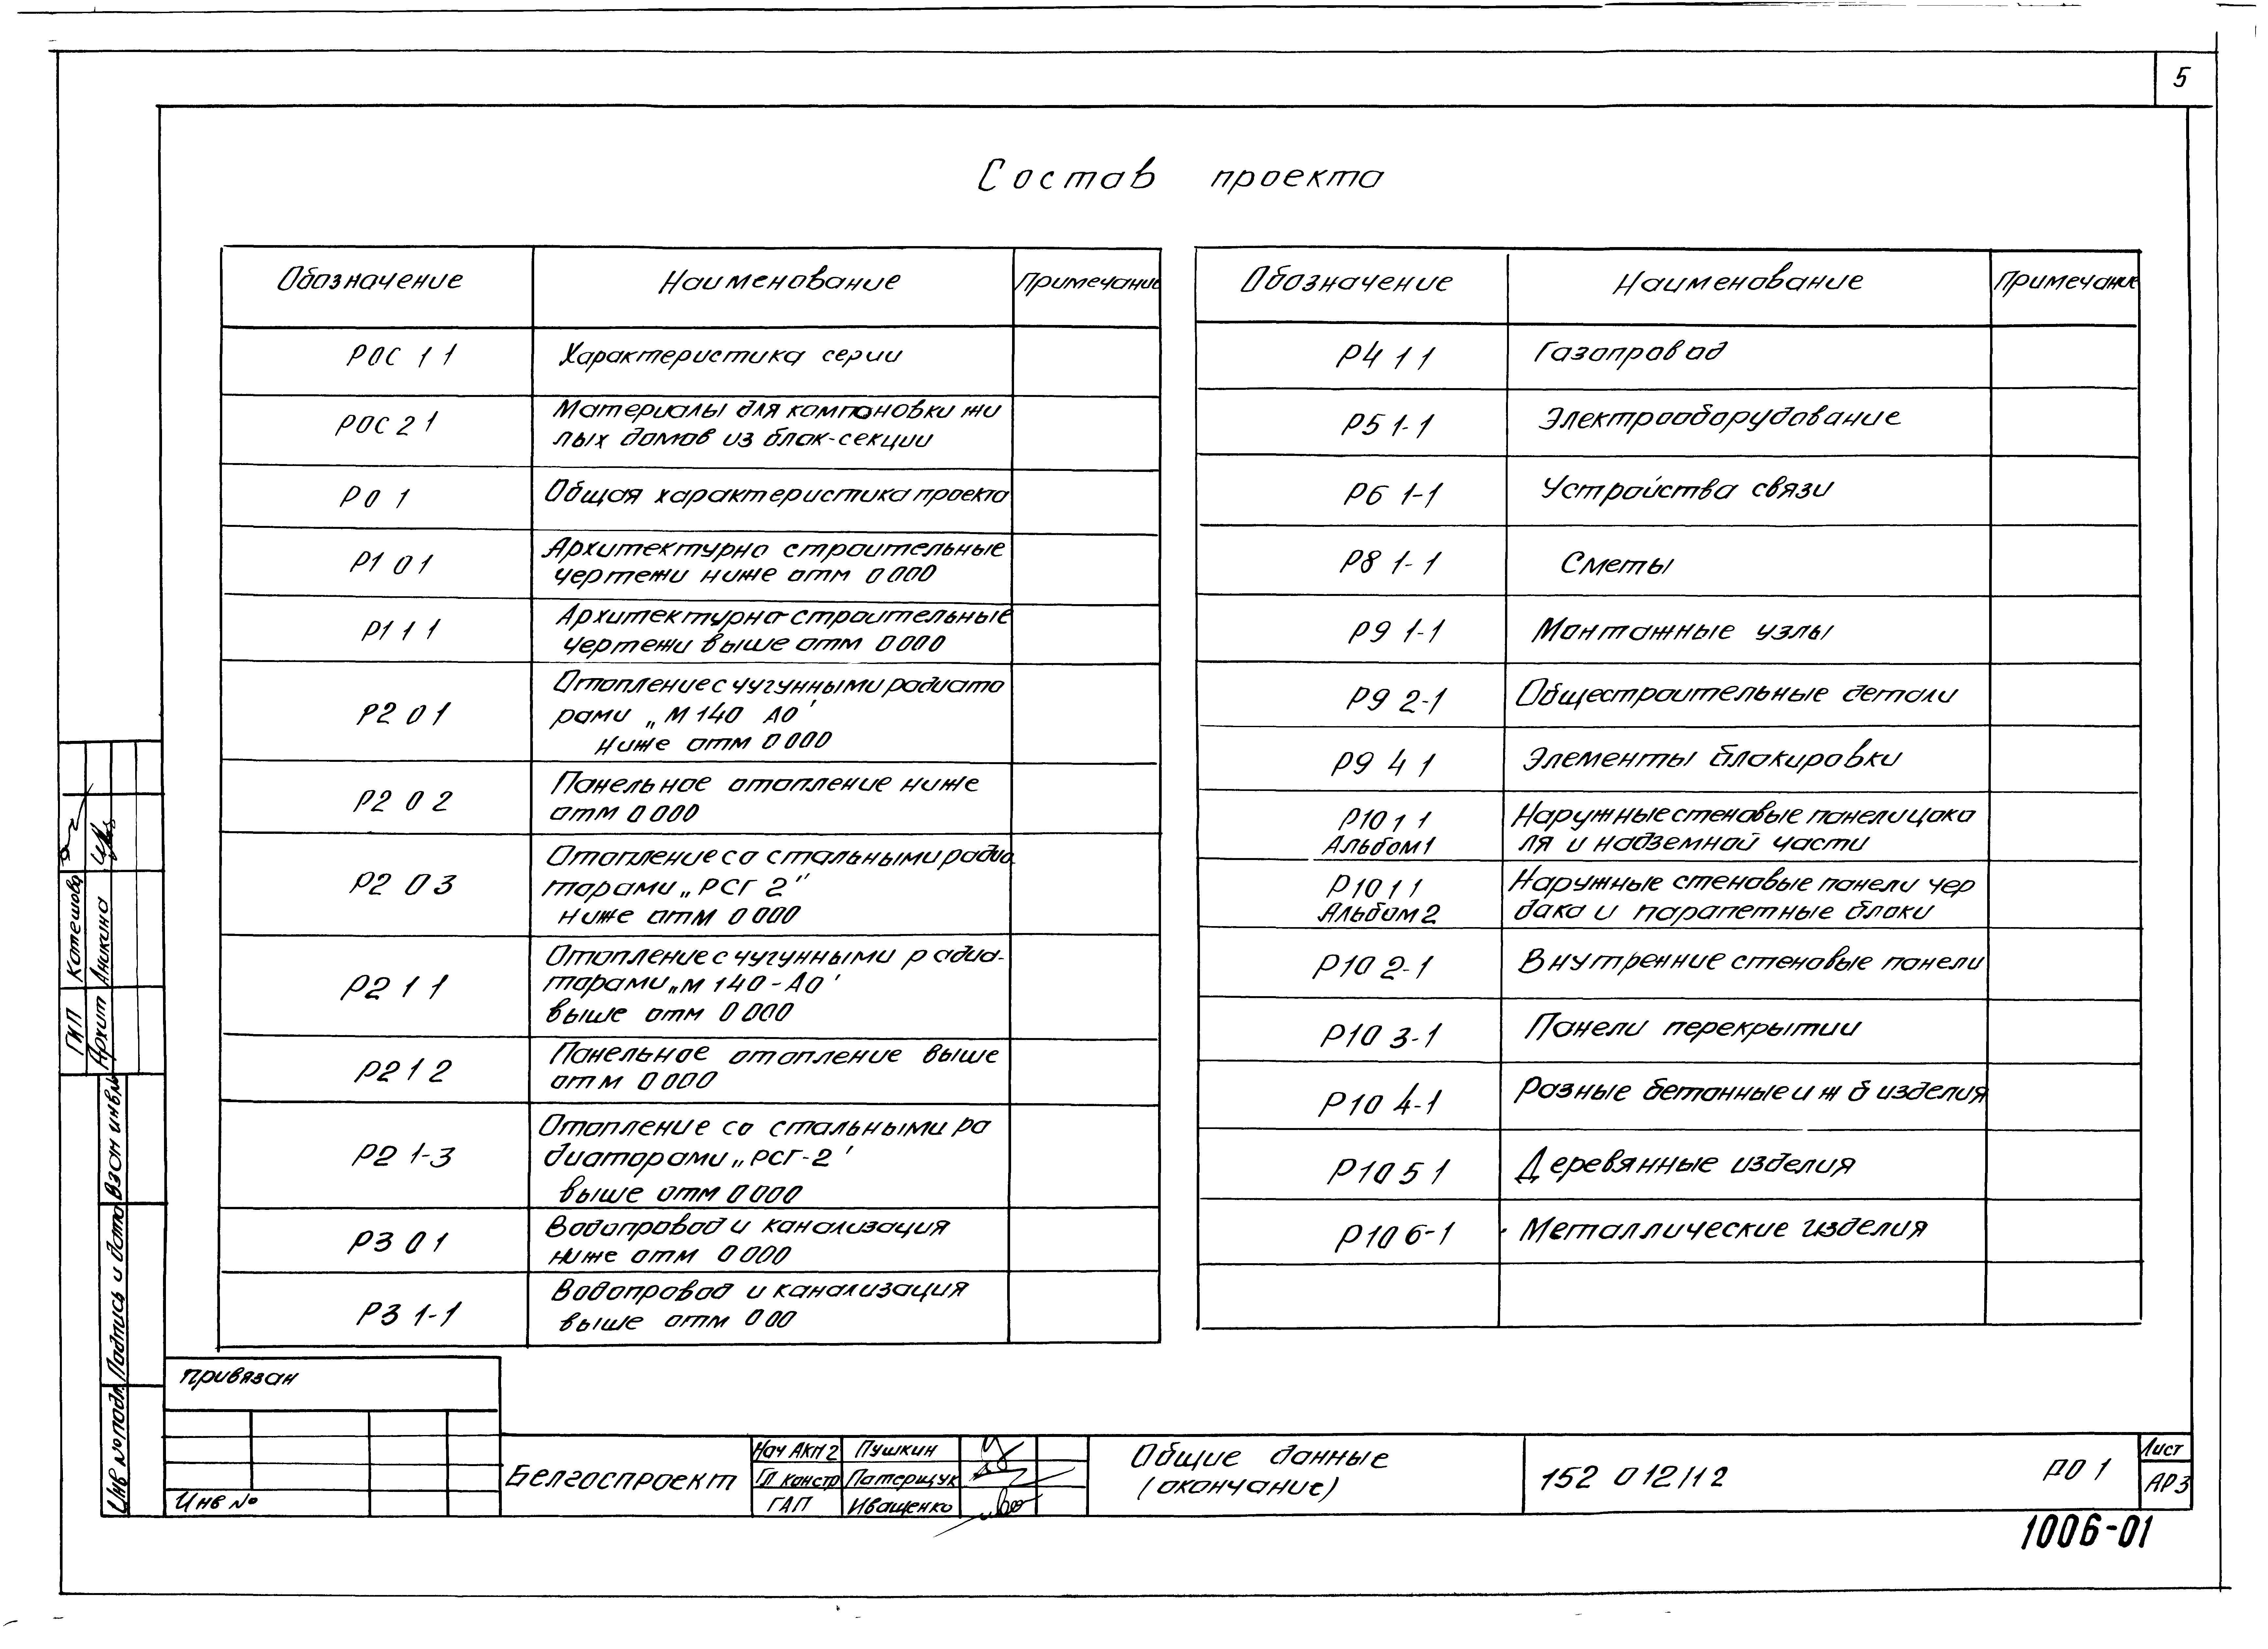 5
Состав проекта
Обозначение Наименование Примечание
РОС 1 1 Характеристика серии
РОС 2 1 Материалы для компоновки жи
лых домов из блок-секции
Р0 1 Общая характеристика проекта
Р1 0 1 Архитектурно строительные
чертежи ниже отм 0 000
Р1 1 1 Архитектурно-строительные
чертежи выше отм 0 000
Р2 0 1 Отопление с чугунными радиато
рами „М 140 АО"
ниже отм 0 000
Р2 0 2 Панельное отопление ниже
отм 0 000
Р2 0 3 Отопление со стальными радиа
торами „РСГ 2"
ниже отм 0 000
Р2 1 1 Отопление с чугунными радиа-
торами „М 140-АО"
выше отм 0 000
Р2 1 2 Панельное отопление выше
отм 0 000
Р2 1-3 Отопление со стальными ра
диаторами „РСГ-2"
выше отм 0 000
Р3 0 1 Водопровод и канализация
ниже отм 0 000
Р3 1-1 Водопровод и канализация
выше отм 0 00
Обозначение Наименование Примечание
Р4 1 1 Газопровод
Р5 1-1 Электрооборудование
Р6 1-1 Устройства связи
Р8 1-1 Сметы
Р9 1-1 Монтажные узлы
Р9 2-1 Общестроительные детали
Р9 4 1 Элементы блокировки
Р10 1 1 Наружные стеновые панели цоко
Альбом 1 ля и надземной части
Р10 1 1 Наружные стеновые панели чер
Альбом 2 дака и парапетные блоки
Р10 2-1 Внутренние стеновые панели
Р10 3-1 Панели перекрытии
Р10 4-1 Разные бетонные и ж б изделия
Р10 5 1 Деревянные изделия
Р10 6-1 Металлические изделия
ГИП Котешова
Архит Аникина
Взам инв №
Подпись и дата
Инв № подл
привязан
Инв №
Белгоспроект
Нач АКМ 2 Пушкин
Гл констр Патерщук
ГАП Иващенко
Общие данные
(окончание)
152 0 12/1 2 Р0 1
Лист
АР 3
1006-01